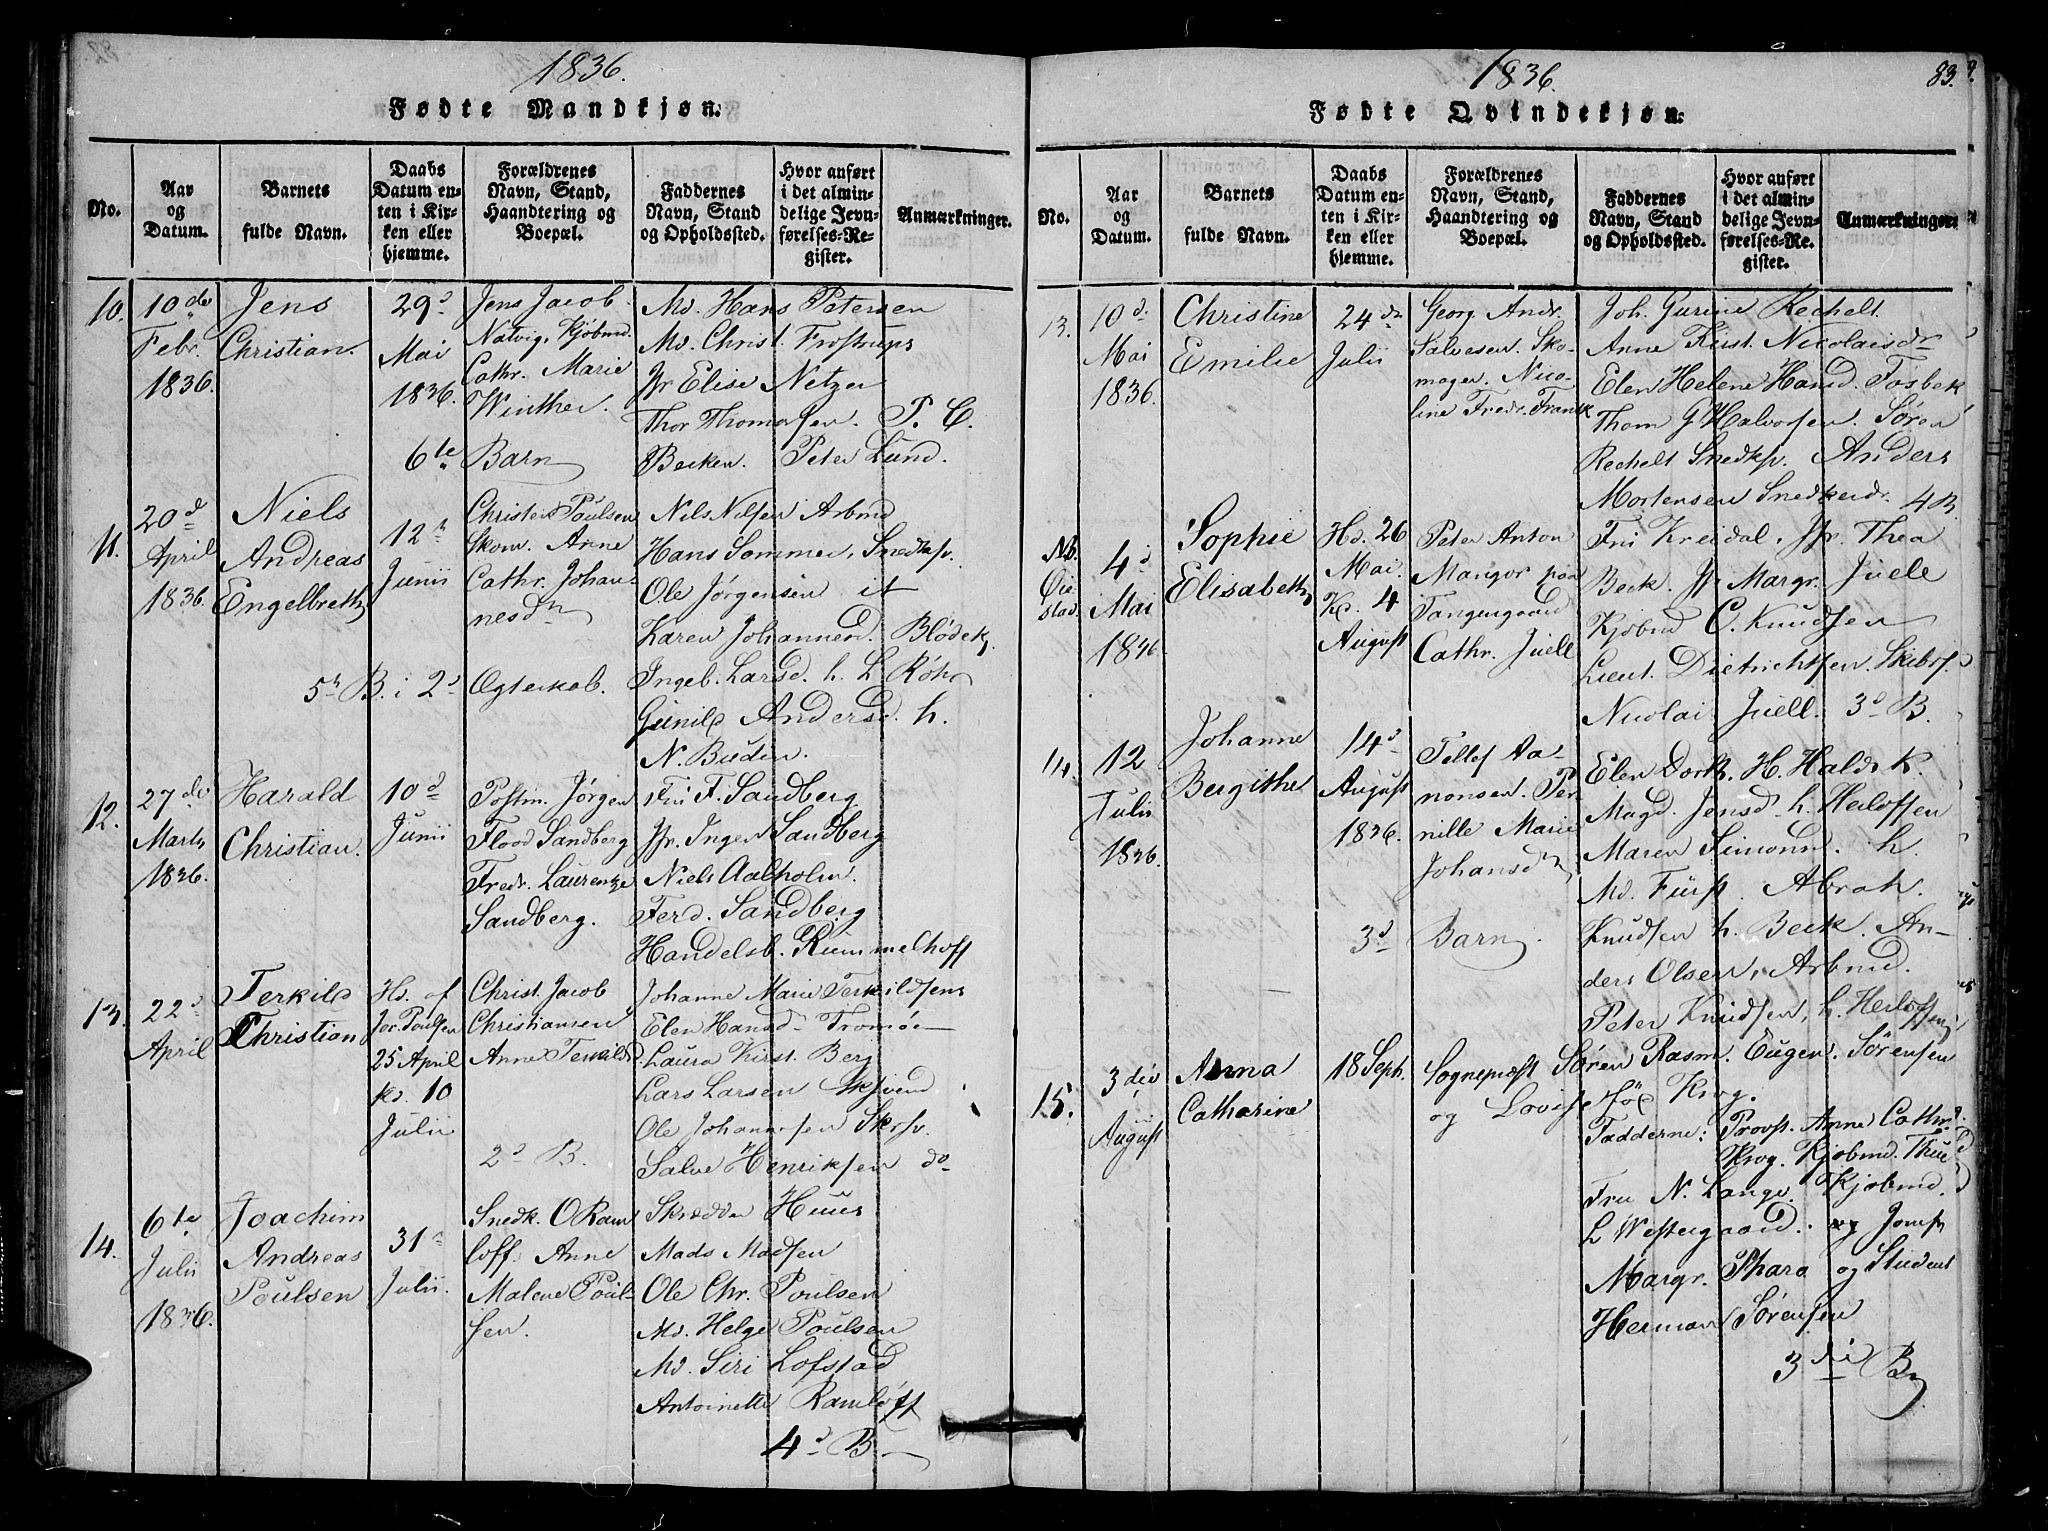 1836.
Fødte Mandkjøn.
No.
Aar og Datum.
Barnets fulde Navn.
Daabs Datum enten i Kirken eller hjemme.
Forældrenes Navn, Stand, Haandtering og Boepæl.
Faddernes Navn, Stand og Opholdssted.
Hvor anført i det almindelige Jevnførelses-Register.
Anmærkninger.
10.
10de
Febr.
1836.
Jens
Christian.
29d
Mai
1836.
Jens Jacob
Natvig, Kjøbmd
Cathr. Marie
Winther.
6te Barn
Md. Hans Petersen
Md. Christ. Frostrups
Jfr Elise Netzer
Thor Thomassen. P. C.
Becken. Peter Lund.
11.
20d
April
1836.
Niels
Andreas
Engelbreth
12
Junii
Christen Poulsen
Skom. Anne
Cathr. Johan-
nesd
5 B. i 2d Ægteskab.
Nils Nilsen Arbmd
Hans Sommer, Snedksv.
Ole Jørgensen it
Karen Johannesd. Blödek
Ingeb. Larsd. h. L Röhr
Gunild Andersd. h.
N. Buden.
12.
27de
Marts
1836.
Harald
Christian.
10d
Junii
Postm. Jørgen
Flood Sandberg
Fredr. Laurentze
Sandberg.
Fru F. Sandberg
Jfr. Inger Sandberg
Niels Aalholm.
Ferd. Sandberg
Handelsb. Rummelhoff
13.
22d
April
Terkild
Christian
Hd. af
Jor. Poulsen
25 April
kd. 10
Julii
Christ. Jacob
Christiansen
Anne Terkilds
2d B.
Johanne Marie Terkildsens
Elen Hansd. Tromøe
Laura Kirst. Berg
Lars Larsen
Ole Johannesen Sksv.
Salve Henriksen do
14.
6te
Julii
1836.
Joachim
Andreas
Poulsen
31
Julii.
Snedk. O Ram
loff. Anne
Malene Poul-
sen.
Skrædder Huus
Mads Madsen
Ole Chr. Poulsen
Md. Helge Poulsen
Md. Siri Lofstad
Antoinette Ramløff
4d B.
1836.
83.
Fødte Qvindekjøn.
No.
Aar og Datum.
Barnets fulde Navn.
Daabs Datum enten i Kirken eller hjemme.
Forældrenes Navn, Stand, Haandtering og Boepæl.
Faddernes Navn, Stand og Opholdssted.
Hvor anført i det almindelige Jevnførelses-Register.
Anmærkninger.
13.
10d
Mai
1836.
Christine
Emilie
24d
Julii
Georg Andr.
Salvesen. Sko-
mager. Nico-
line Fredr. Frank
Joh. Gurine Rechelt
Anne Kirst. Nicolaisdr
Elen Helene Hansd. Fosbek
Thom G Halvorsen. Søren
Rechelt Snedksv. Anders
Mortensen Snedkerdr. 4 B.
Nb.
Øie
stad.
4d
Mai
1836
Sophie
Elisabeth
Hd. 26
Mai.
Kd. 4
August
Peter Anton
Mangor paa
Tangengaard
Cathr. Juell
Fru Kreidal, Jfr. Thea
Beck. Jfr Margr. Juele
Kjøbmd C. Knudsen
Lieut. Dietrichsen. Skibsf
Nicolai Juell. 3d B.
14.
12
Julii
1836.
Johanne
Bergithe
14d
August
1836.
Tellef Aa-
nonsen. Per
nille Marie
Johansd
3d Barn.
Elen Dork. H. Halds K.
Magd. Jensd. h. Herloffsen
Maren Simond. h.
Md. Fürst. Abrah.
Knudsen h. Beck. An-
ders Olsen, Arbmd.
Peter Knudsen, h. Herloffsen
15.
3die
August
Anna
Catharine
18 Sept.
Sognepræst Søren Rasm. Eugen. Sørensen
og Lovise født Krog.
Fadderne: Provst. Anne Cathr.
Krog. Kjøbmd. Thue
Fru N. Lange. Kjøbmd.
L Westergaard. og Jomfr
Margr. Phara og Student
Herman Sørensen
3di B